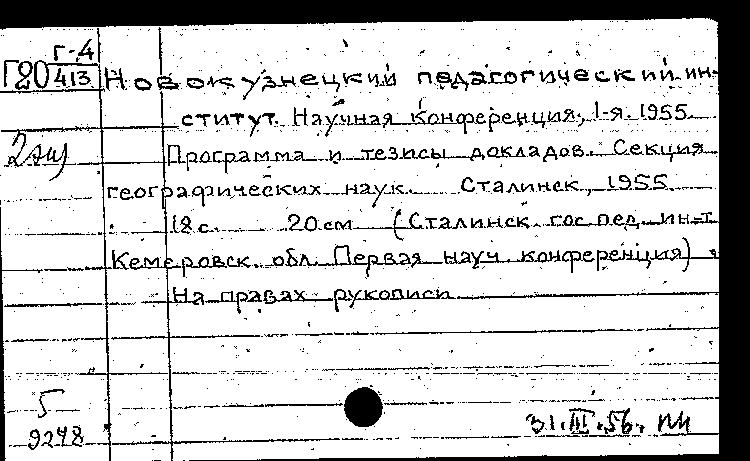 Г-4
Г20 413 Новокузнецкий педагогический ин-
ститут. Научная конференция, 1-я. 1955.
2 экз
Программа и тезисы докладов. Секция
географических наук. Сталинск, 1955.
18 с. 20 см (Сталинск. гос. пед. ин-т
Кемеровск. обл. Первая науч. конференция)
На правах рукописи
5
9248
31.III.56.